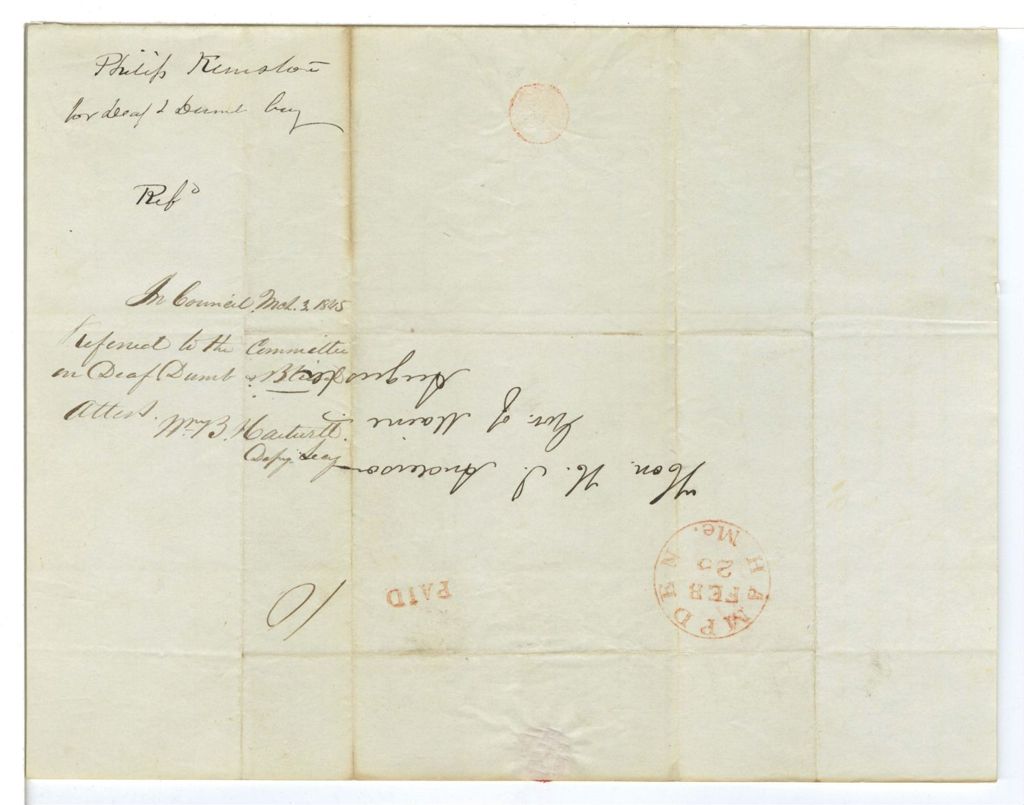 Philip
for Deaf & Dumb boy
Refd
In Council, Mch. 3, 1845
Referred to the Committee
on Deaf Dumb & Blind
Attest.
Wm B. Hartwell.
Depy. Secy
Hon. H. J. Anderson
Gov. of Maine
Augusta
HAMPDEN
Me.
FEB
PAID
10